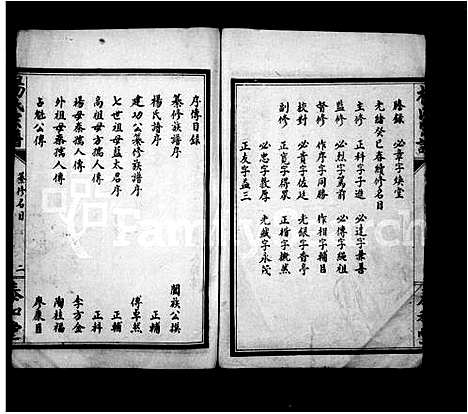 謄錄　必章字煥堂
光緒癸巳春續修名目
主修　正科字子進　必達字兼善
監修　必烈字篤前　必傳字繩祖
督修　作序字同勝　作相字輔
校對　必貴字佐廷　光銀字香亭
副修　正寬字得眾　正楷字
必忠字教厚　光斌字永茂
正友字益三
序傳目錄
纂修族譜序　闔族公撰
楊氏譜序　正輔
建功公纂修族譜序　傅卓然
七世祖母藍太君序　正輔
高祖母方孺人傳　正科
楊母秦孺人傳　李方金
外祖母秦孺人傳　陶桂福
占魁公傳　廖康目
纂修名目
二
FamilySearch